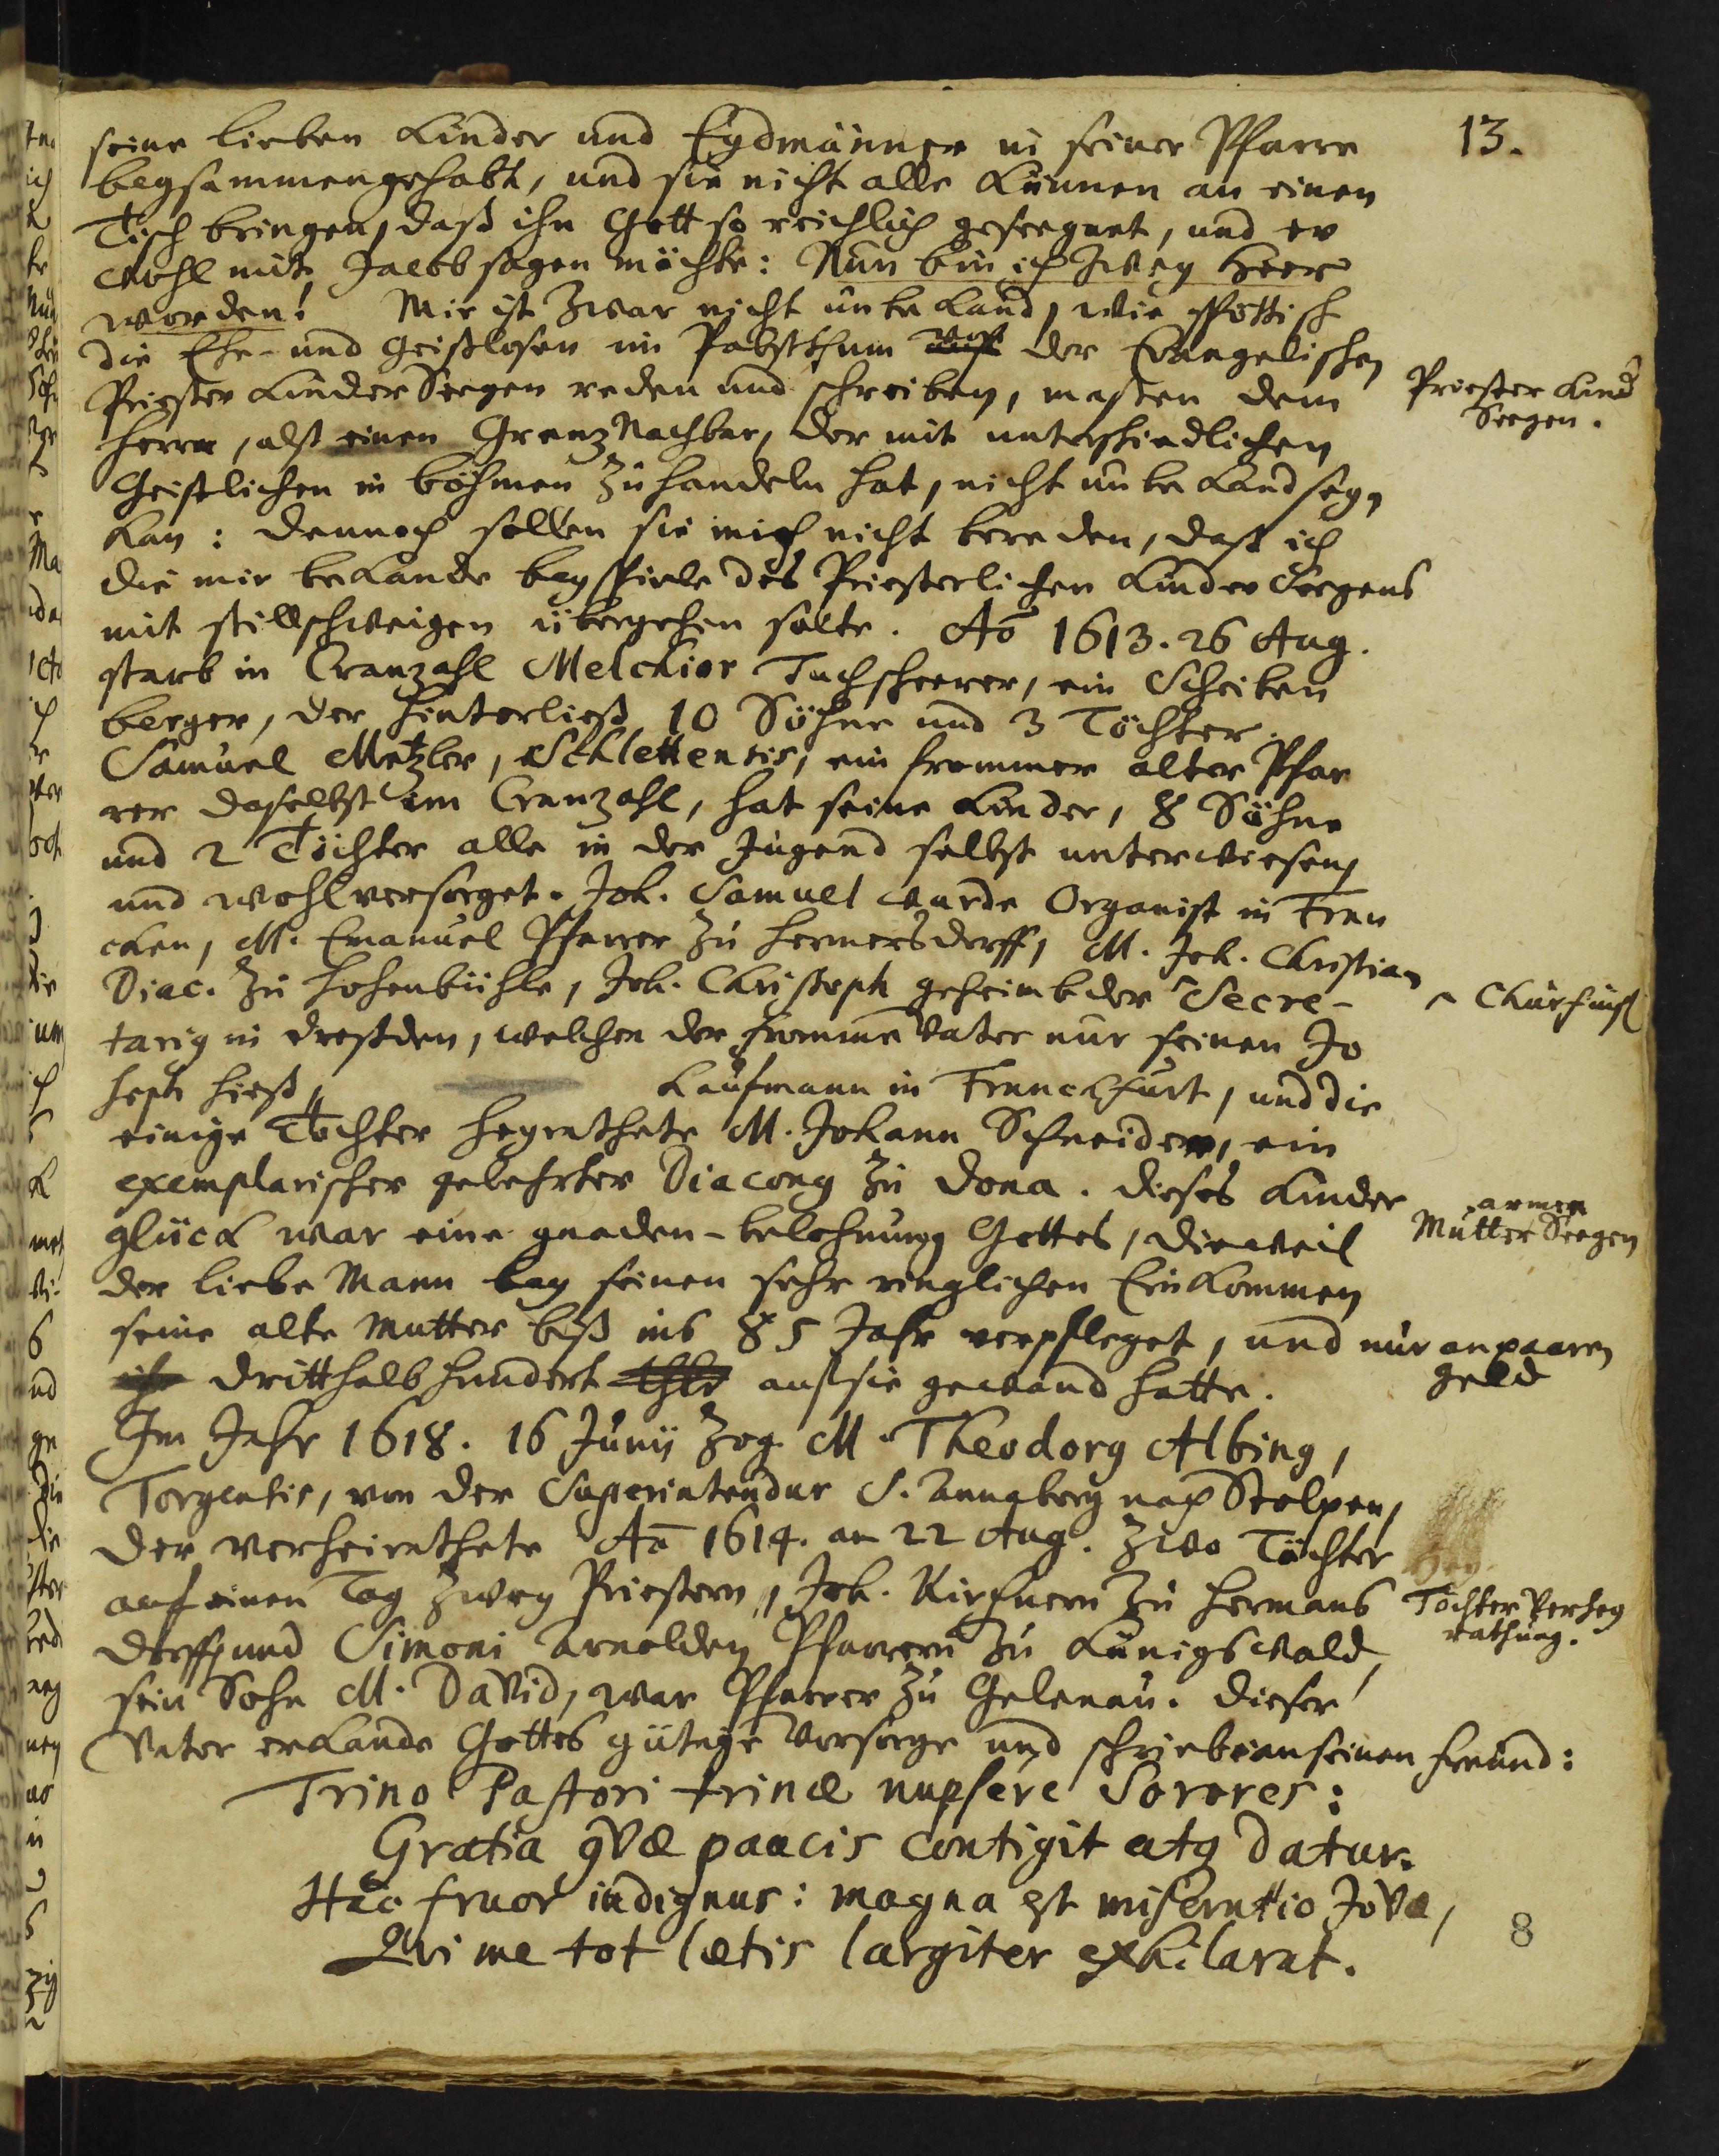 13.
seine lieben Kinder und Eydmänner in seiner Pfarre
beysammengehabt, und sie nicht alle können an einen
Tisch bringen, daß ihn Gott so reichlich geseegnet, und er
wohl mit Jacob sagen möchte: Nun bin ich Zwey Heer
worden! Mir ist zwar nicht unbekand, wie spöttisch
die Ehe- und Geistlosen im Pabstthum der Evangelischen
Priester Kinder Seegen reden und schreiben, maßen dem
Priester Kind
Seegen.
Herrn, alß einen Grenz Nachbar, der mit unterschiedlichen
Geistlichen in böhmen zu handeln hat, nicht unbekand seyn
kan: dennoch sollen sie mich nicht bereden, daß ich
die mir bekande beyspiele des Priesterlichen Kinder Seegens
mit stillschweigen übergehen solte. Ao 1613. 26 Aug.
starb in Cranzahl Melchior Tuchscherer, ein Scheiben
berger, der hinterließ 10 Söhne und 3 Töchter.
Samuel Metzler, Schlettensis, ein frommer alter Pfar
rer daselbst im Cranzahl, hat seine Kinder, 8 Söhne
und 2 Töchter alle in der Jugend selbst unterwiesen
und wohl versorget. Joh. Samuel wurde Organist in Fran
cken, M. Emanuel Pfarrer zu Hermersdorff, M. Joh. Christian
Diac. zu Hohenbühle, Joh. Christoph geheimbder Secre-
^ Churfürstl
tarig in Dreßden, welchen der fromme Vater nur seinen Jo
seph hieß, Kaufmann in Franckfurt, und die
einige Tochter heyrathete M. Johann Schneider, ein
exemplarischer gelehrter Diacong zu Dona. dieses Kinder
glück war eine gnaden-belohnung Gottes, dieweil
armer
Mutter Seegen
der liebe Mann bey seinen sehr ringlichen Einkommen
seine alte Mutter biß ins 85 Jahr verpfleget, und nur an paaren
geld
dritthalb hundert thlr auf sie gewand hatte.
Im Jahr 1618. 16 Junij Zog M. Theodorg Albing,
Torgensis, von der Superintendur S. Annaberg nach Stolpen,
der verheirathete Ao 1614. am 22 Aug. zwo Töchter
auf einen Tag zwey Priestern, Joh. Kirchnern zu Hermans
Töchter Verhey
rathung.
dorff und Simoni Arnolden Pfarrern zu Königswald,
sein Sohn M. David, war Pfarrer zu Gelenau. dieser
Vater erkande Gottes gütige Vorsorge und schrieb an seinen Freund:
Trino Pastori trinæ nupsere Sorores:
Gratia qvæ paucis contigit atq datur.
Hac fruor indignus: magna est miseratio Jovæ,
Qvi me tot lætis largiter exhilarat.
8